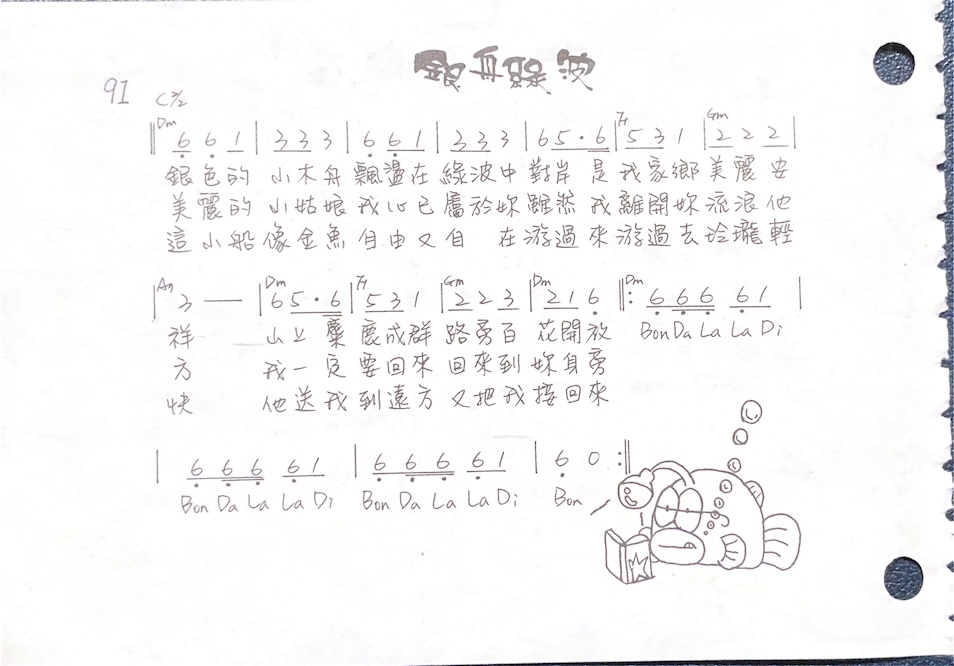 銀舟綠波
91 C 2/2
Dm F Gm
‖ 6 6 1 | 3 3 3 | 6 6 1 | 3 3 3 | 6 5 · 6 | 5 3 1 | 2 2 2 |
銀色的 小木舟 飄盪在 綠波中 對岸 是 我家鄉 美麗 安
美麗的 小姑娘 我心已 屬於妳 雖然 我 離開妳 流浪 他
這小船 像金魚 自由又自 在 游過 來 游過去 玲瓏 輕
Am Dm F Gm Dm Dm
| 3 — | 6 5 · 6 | 5 3 1 | 2 2 3 | 2 1 6 ‖: 6 6 6 6 1 |
祥 山上 麋 鹿成群 路旁百 花開放 Bon Da La La Di
方 我一 定 要回來 回來到 妳身旁
快 他送 我 到遠方 又把我 接回來
| 6 6 6 6 1 | 6 6 6 6 1 | 6 0 :‖
Bon Da La La Di Bon Da La La Di Bon